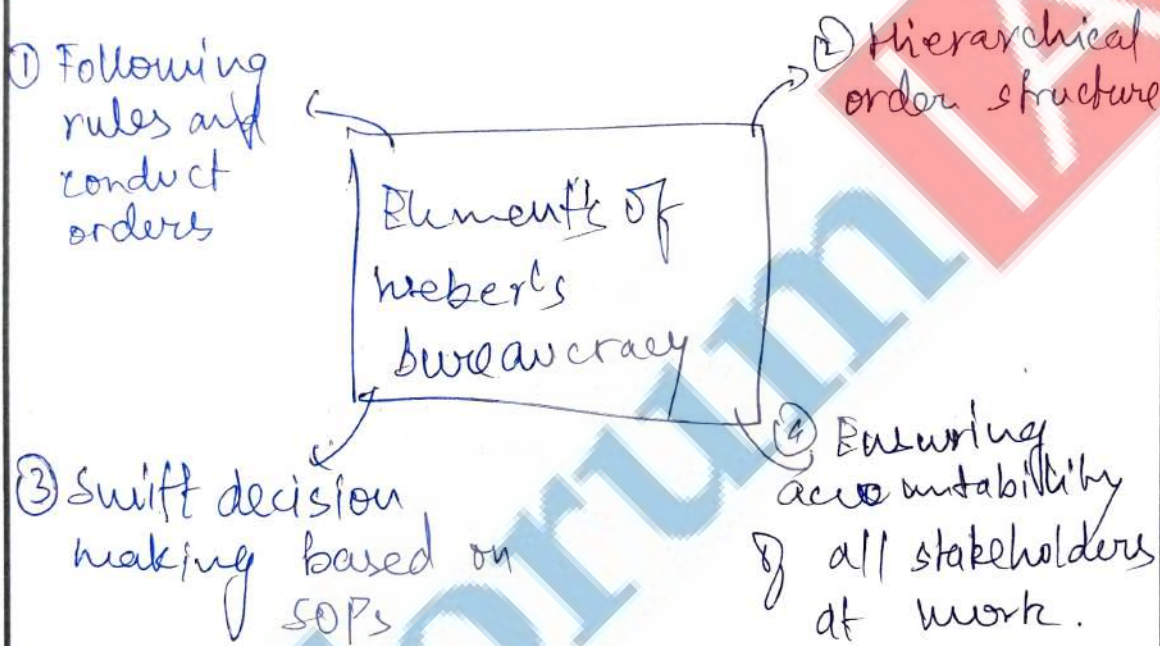 ① Following
rules and
conduct
orders
② Hierarchical
order structure
Elements of
Weber's
bureaucracy
③ Swift decision
making based on
SOPs
④ Ensuring
accountability
of all stakeholders
at work.
orum
IA